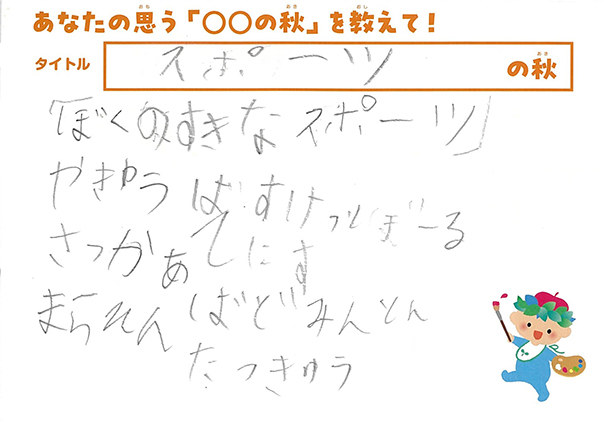 あなたの思う「〇〇の秋」を教えて!
タイトル スポーツ の秋
「ぼくのすきなスポーツ」
やきゅう ばすけっとぼーる
さっかあ てにす
まらそん ばどみんとん
たっきゅう